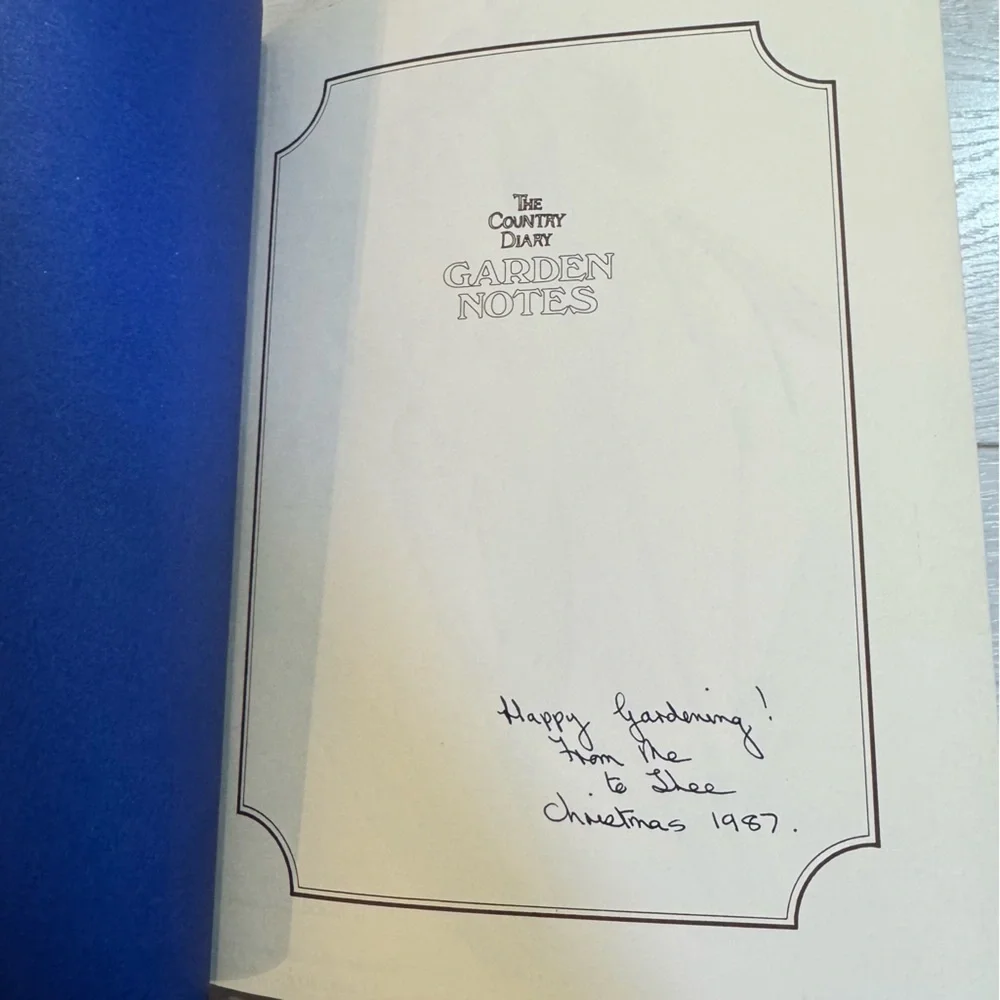 THE
COUNTRY
DIARY
GARDEN
NOTES
Happy Gardening!
From Me
to Thee
Christmas 1987.